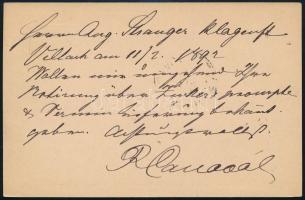 Herrn Aug. Stanger Klagenft
Villach am 11/2. 1892
Wollen mir umgehend Ihre
Notirung über Zucker prompte
& Termin Lieferung bekant
geben. Achtungsvollst
R Canaval